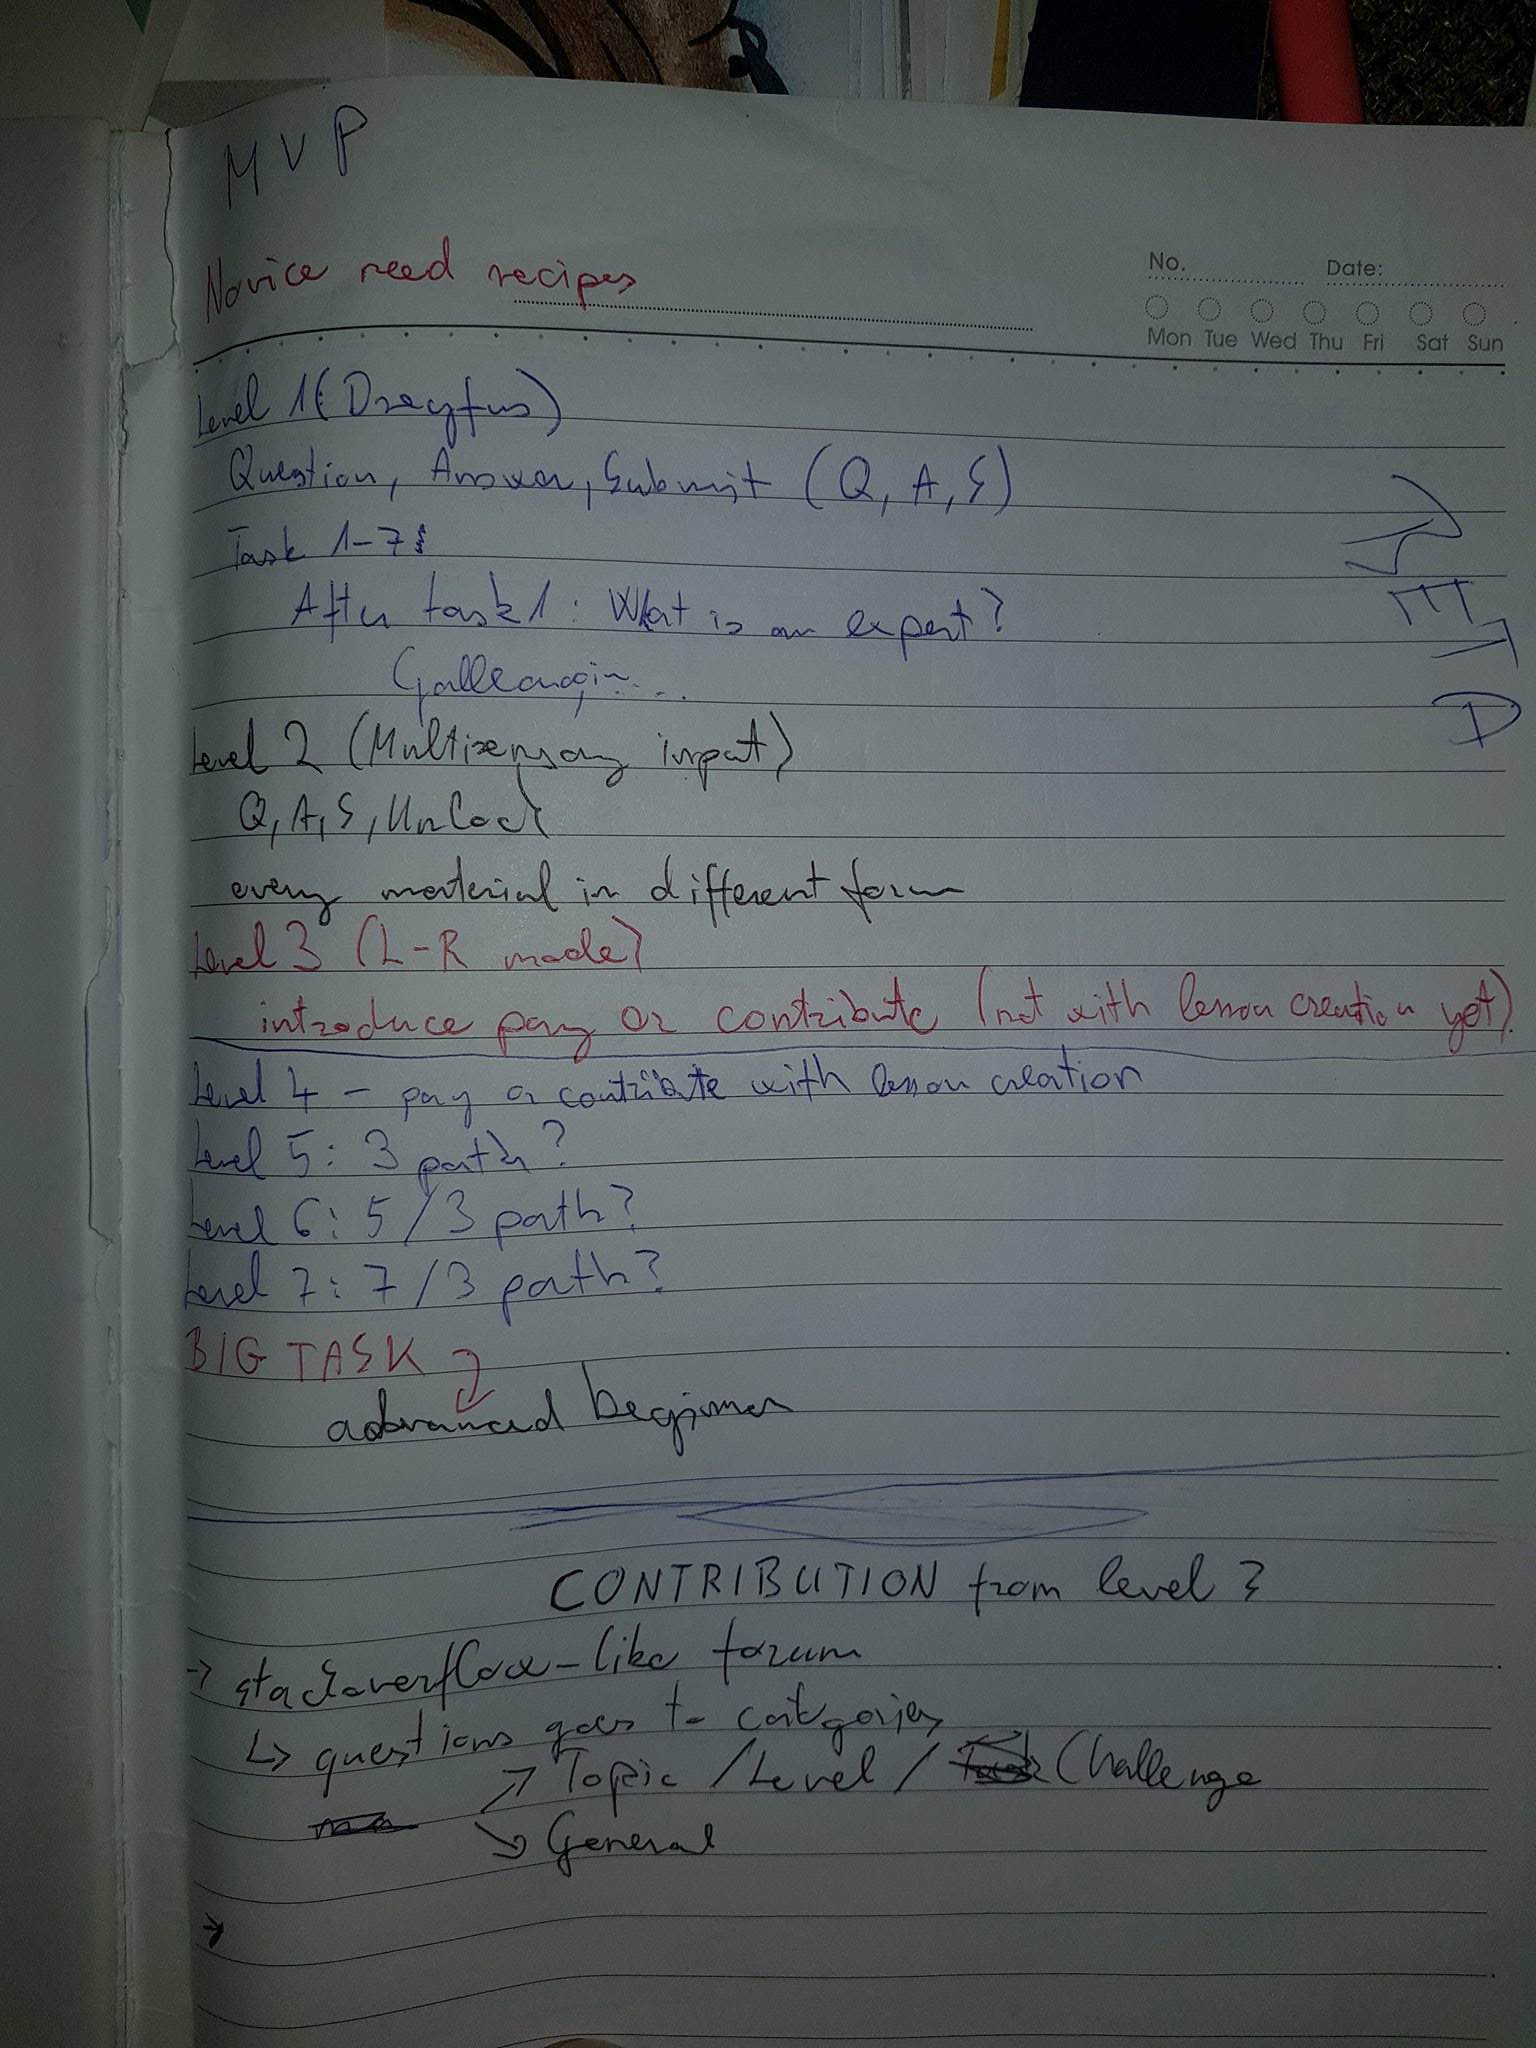 MVP
Novice need recipes
No. Date:
Mon Tue Wed Thu Fri Sat Sun
Level 1 (Dreyfus)
Question, Answer, Submit (Q, A, S)
Task 1-7:
After task 1: What is an expert?
Level 2 (Multisensory input)
Q, A, S, Unlock
every material in different form
Level 3 (L-R mode)
introduce pay or contribute (not with lesson creation yet)
Level 4 - pay or contribute with lesson creation
Level 5: 3 path?
Level 6: 5/3 path?
Level 7: 7/3 path?
BIG TASK
advanced beginner
CONTRIBUTION from level 3
→ stackoverflow-like forum
↳ questions goes to categories
↗ Topic / Level / Challenge
↘ General
→